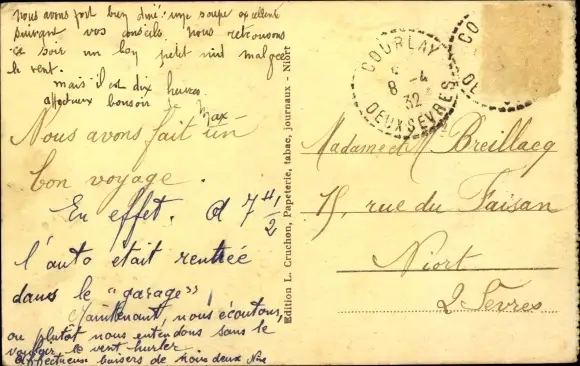 nous avons fort bien diné: une soupe excellente
suivant vos conseils. Nous retrouvons
ce soir un bon petit nid malgré
le vent.
mais il est dix heures.
affectueux bonsoir de
Max
Nous avons fait un
bon voyage.
En effet. A 7 H 1/2
l'auto était rentrée
dans le "garage"!
Maintenant, nous écoutons,
ou plutôt nous entendons sans le
vouloir, le vent hurler
affectueux baisers de nous deux
Edition L. Cruchon, Papeterie, tabac, journaux - Niort
COURLAY
8 -4
32
DEUX SEVRES
CO
DE
Madame et M. Breillacq
15, rue du Faisan
Niort
2 Sèvres